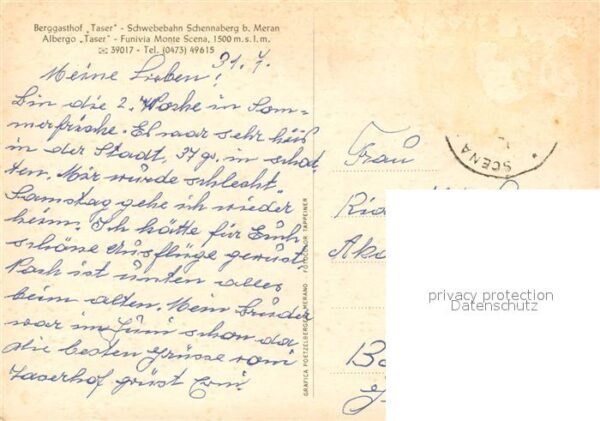 Berggasthof „Taser" - Schwebebahn Schennaberg b. Meran
Albergo „Taser" - Funivia Monte Scena, 1500 m. s. l. m.
39017 - Tel. (0473) 49615
31. 7.
Meine Lieben!
Bin die 2. Woche in Som-
merfrische. Es war sehr heiß
in der Stadt, 37 gr. im schat
ten. Mir wurde schlecht.
Samstag gehe ich wieder
heim. Ich hätte für Euch
schöne Ausflüge gewußt.
unten alles
beim alten. Mein Bruder
war im Juni schon da
die besten Grüsse vom
Taserhof grüst
GRAFICA POETZELBERGER MERANO FOTOCOLOR TAPPEINER
SCENA
Frau
privacy protection
Datenschutz